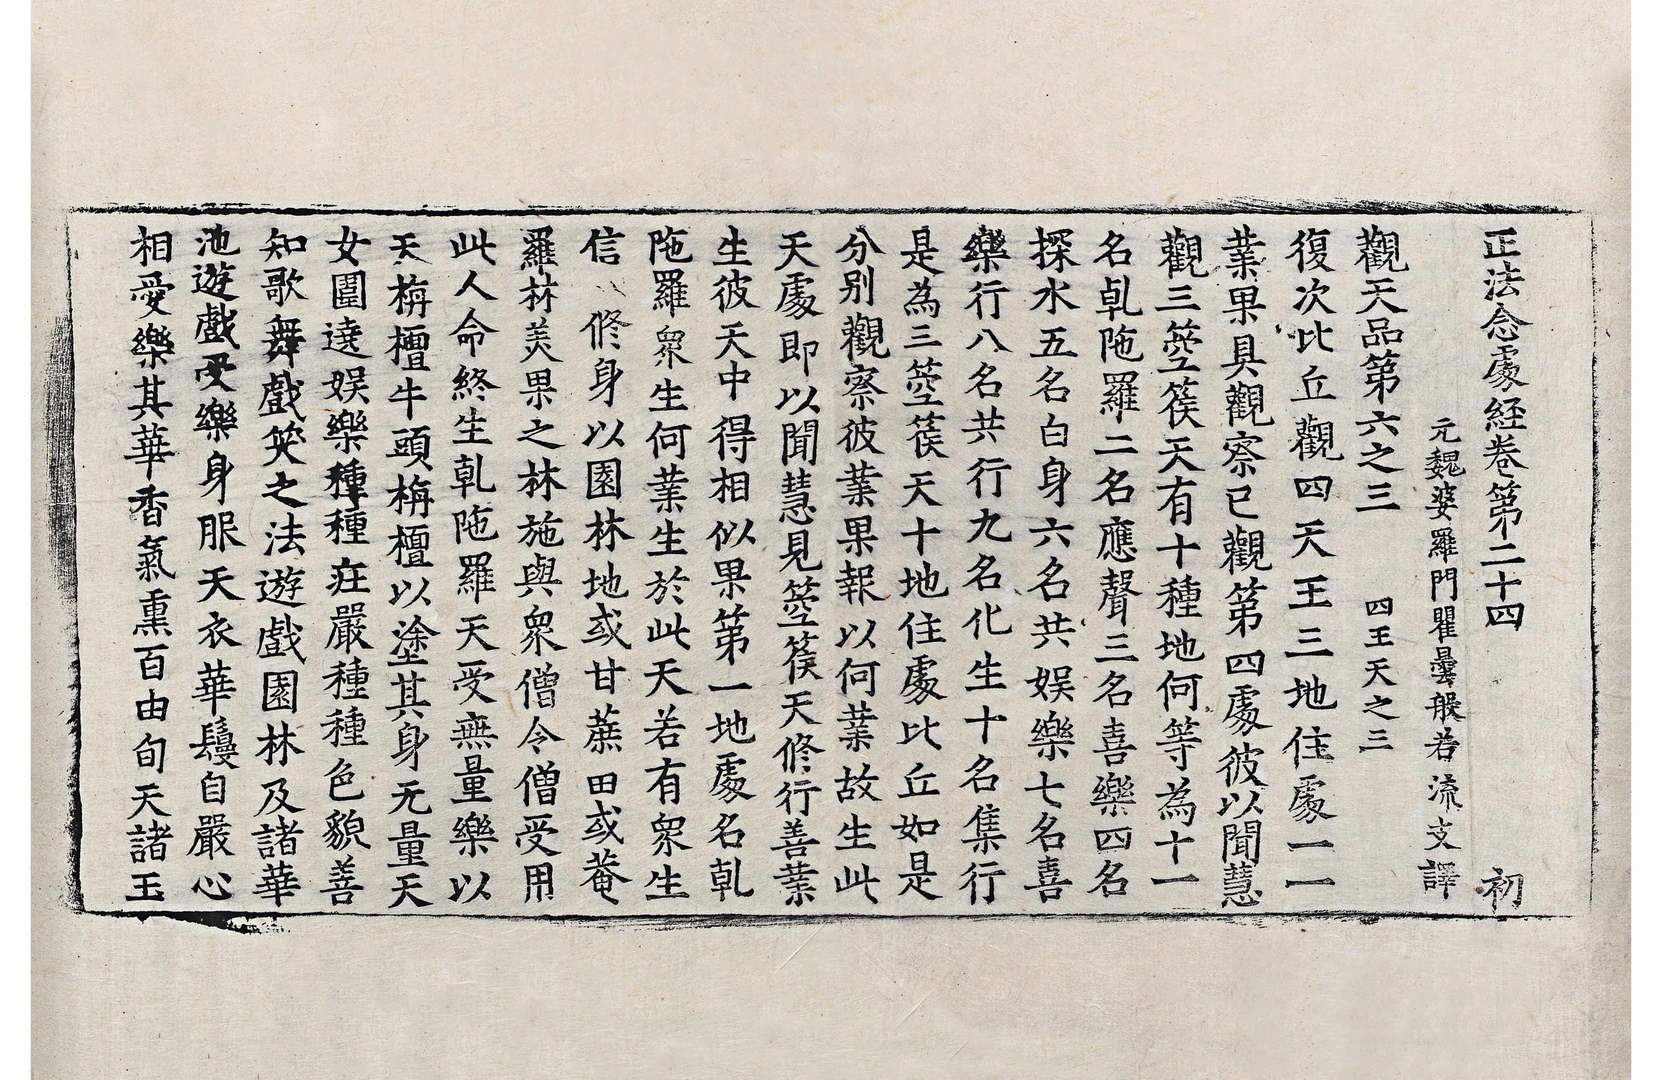 正法念處經卷第二十四　初
元魏婆羅門瞿曇般若流支譯
觀天品第六之三　四王天之三
復次比丘觀四天王三地住處一一
業果具觀察已觀第四處彼以聞慧
觀三箜篌天有十種地何等為十一
名乹陁羅二名應聲三名喜樂四名
探水五名白身六名共娛樂七名喜
樂行八名共行九名化生十名集行
是為三箜篌天十地住處比丘如是
分別觀察彼業果報以何業故生此
天處即以聞慧見箜篌天修行善業
生彼天中得相似果第一地處名乹
陁羅眾生何業生於此天若有眾生
信修身以園林地或甘蔗田或菴
羅林美果之林施與眾僧令僧受用
此人命終生乹陁羅天受無量樂以
天栴檀牛頭栴檀以塗其身无量天
女圍遶娛樂種種莊嚴種種色貌善
知歌舞戲笑之法遊戲園林及諸華
池遊戲受樂身服天衣華鬘自嚴心
相愛樂其華香氣熏百由旬天諸玉